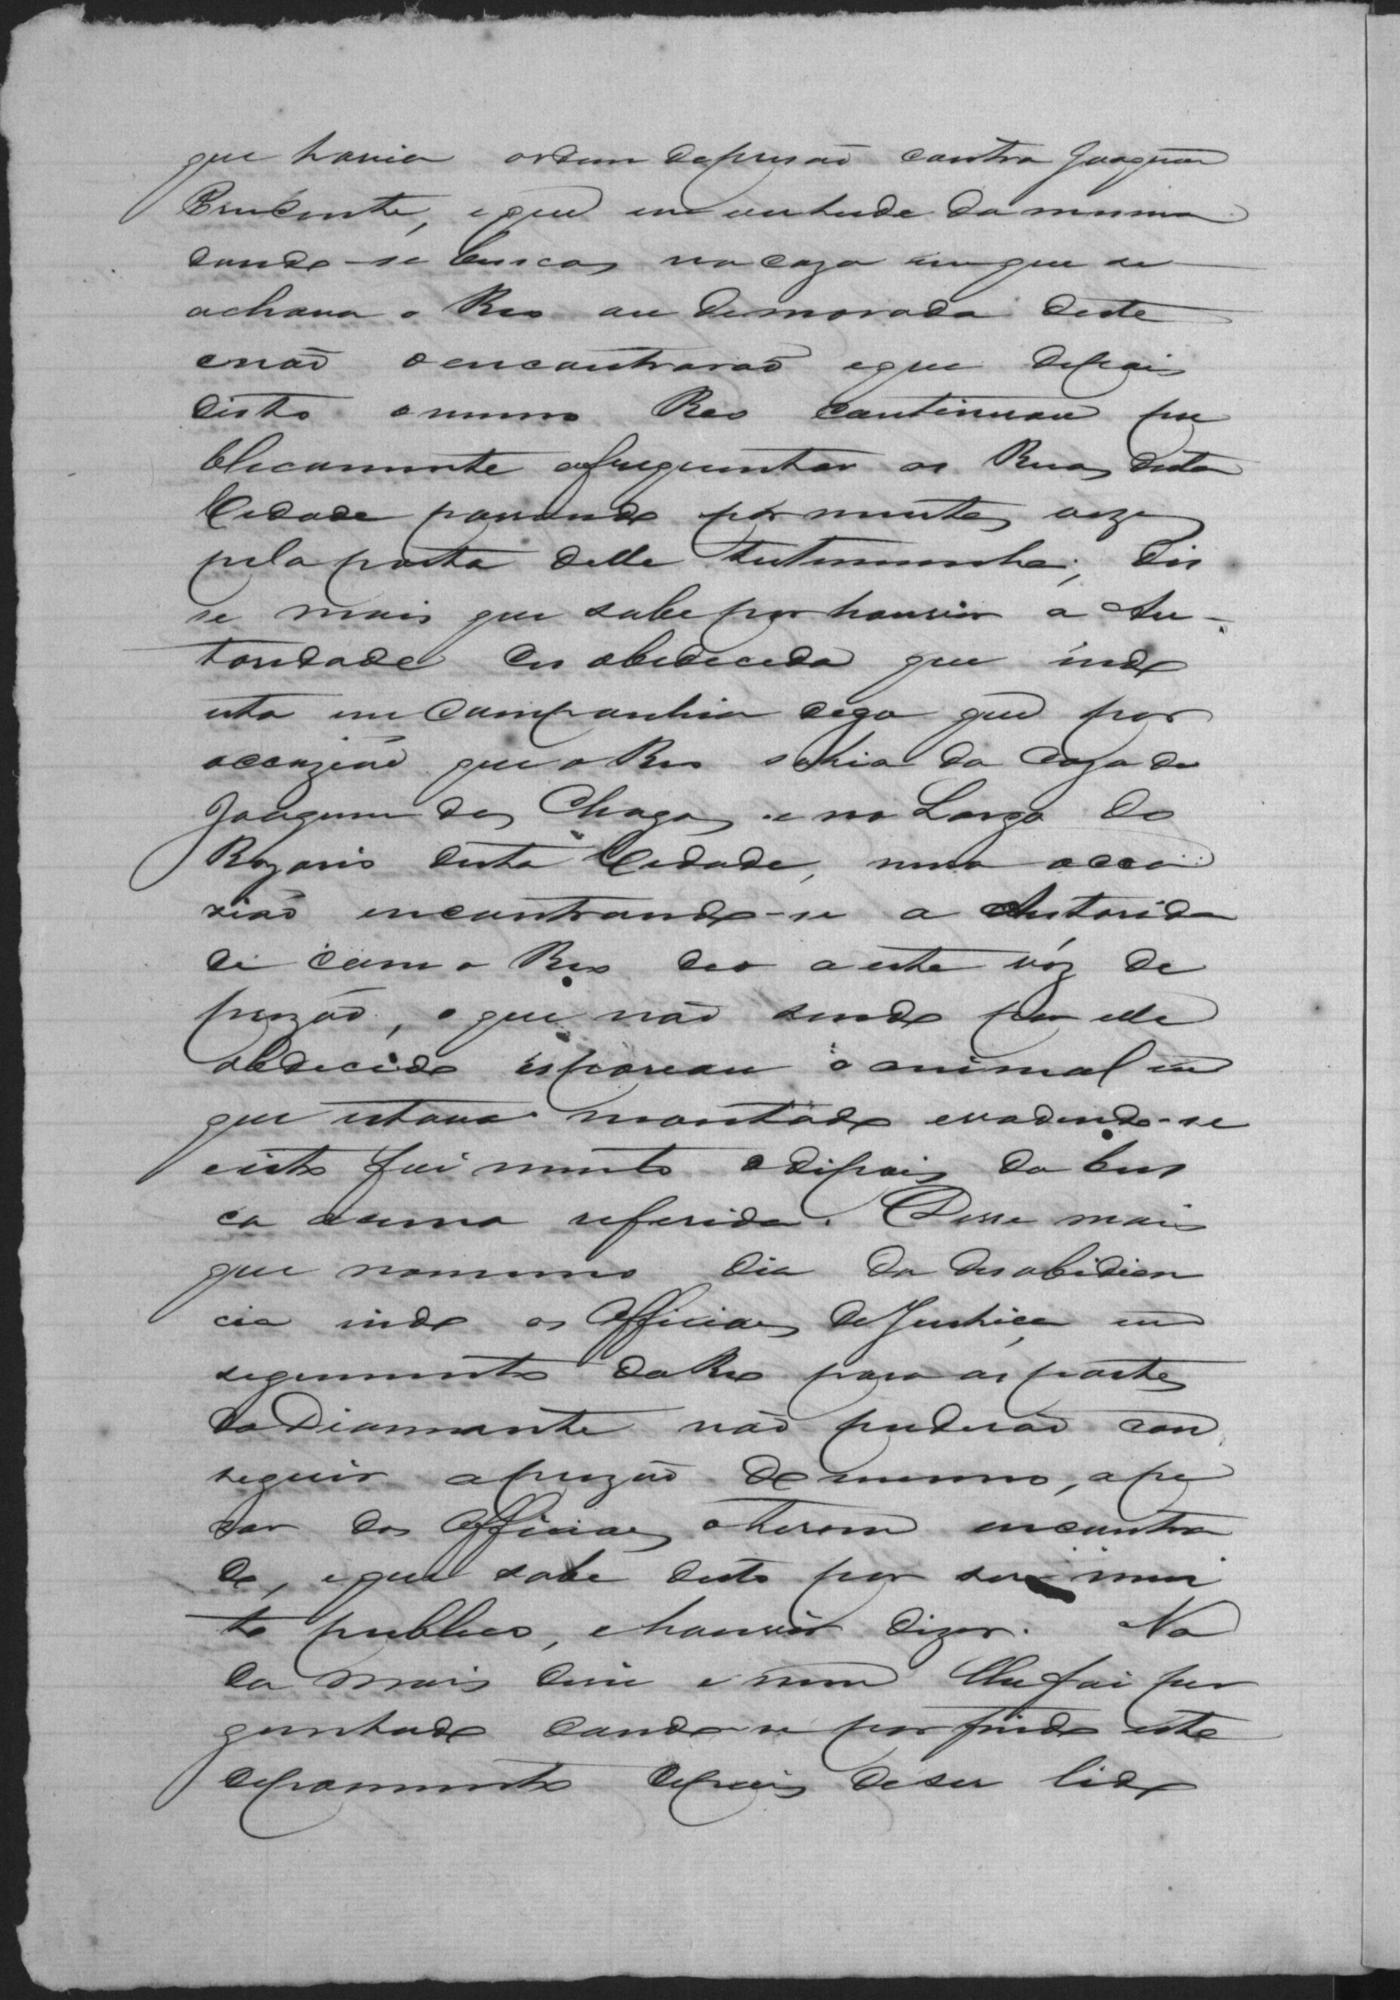 que havia ordem deprisaõ contra Joaquim
Prudente, eque em vertude da mesma
dando-se buscas na caza em que se
achava o Reo ou demorada deste
enaõ oencontraraõ eque depois
disto omesmo Reo continuou pu
blicamente afreguentar as Ruas desta
Cidade passando por muitas vezes
pela porta delle testemunha; Dis
se mais que sabe por houvir a Au-
toridade desobedecida que indo
esta em Companhia cega que por
occaziaõ que o Reo sahia da Caza de
Joaquim das Chagas e no Largo do
Rozario desta Cidade, nessa occa
ziaõ encontrando-se a Autorida
de com o Reo deo a este vóz de
prizaõ, o que naõ sendo por elle
obdecido esporeou o animal em
que estava montado evadindo-se
eisto foi muito depois da bus
ca acima referida. Disse mais
que nomesmo dia da desobidien
cia indo os Officiaes deJustiça em
seguimento doReo para as partes
doDiamante naõ puderaõ con
seguir aprizaõ do mesmo, ape
zar dos Officiaes oterem encontra
do, eque sabe disto por ser mui
to publico, ehouvir dizer. Na
da mais disse e nem lhe foi per
guntado dando-se por findo este
depoimento depois deser lido